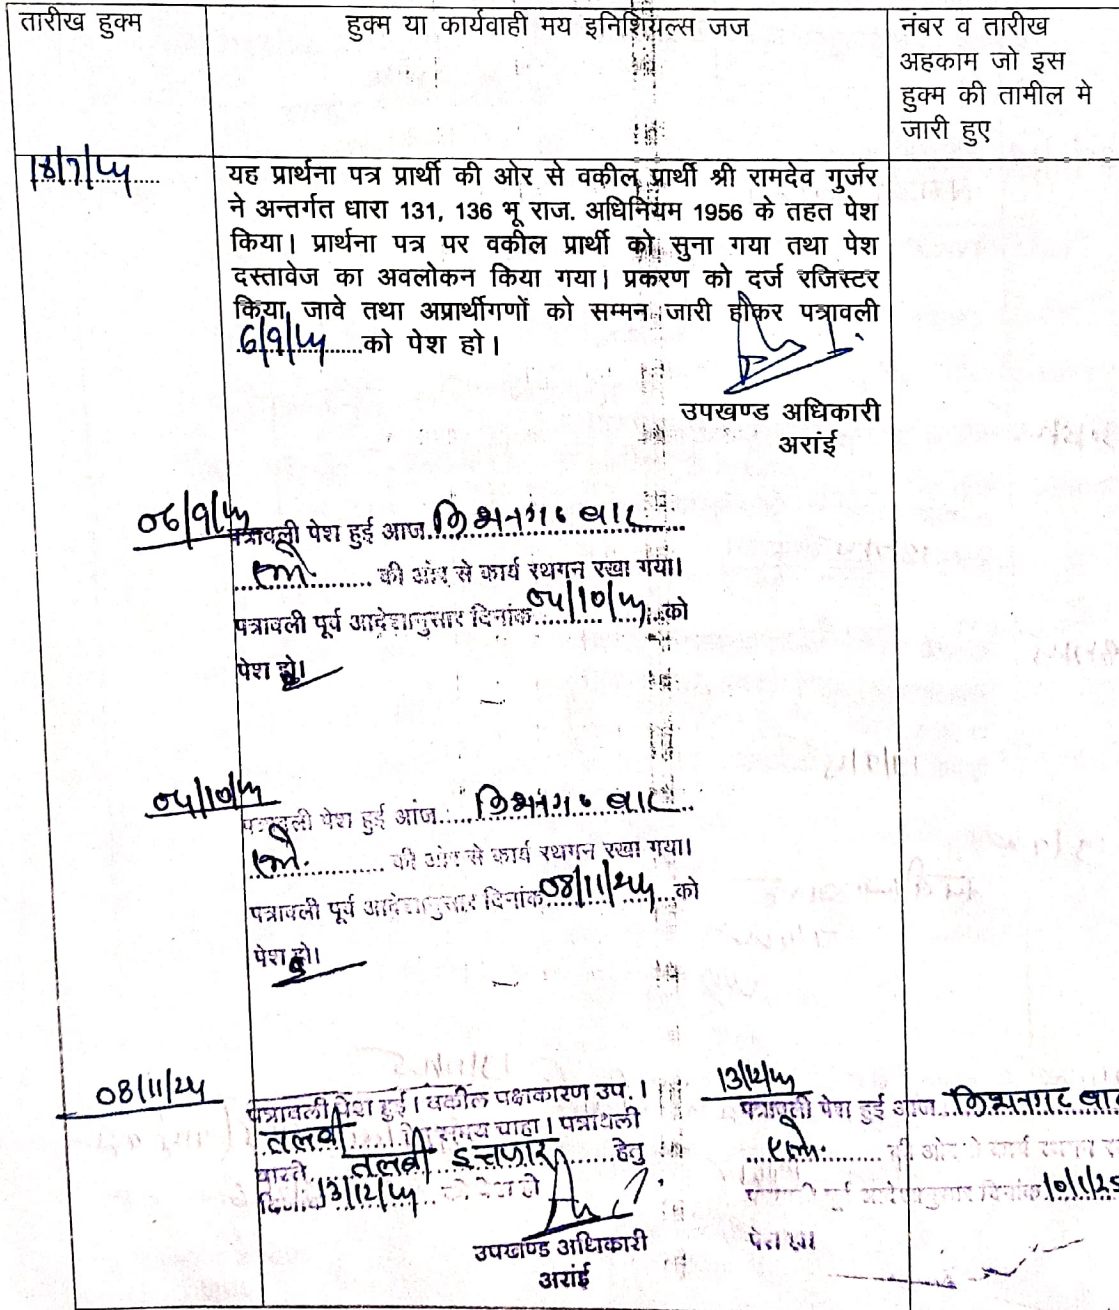 तारीख हुक्म
हुक्म या कार्यवाही मय इनिशियल्स जज
नंबर व तारीख
अहकाम जो इस
हुक्म की तामील मे
जारी हुए
18/7/24
यह प्रार्थना पत्र प्रार्थी की ओर से वकील प्रार्थी श्री रामदेव गुर्जर
ने अन्तर्गत धारा 131, 136 भू राज. अधिनियम 1956 के तहत पेश
किया। प्रार्थना पत्र पर वकील प्रार्थी को सुना गया तथा पेश
दस्तावेज का अवलोकन किया गया। प्रकरण को दर्ज रजिस्टर
किया जावे तथा अप्रार्थीगणों को सम्मन जारी होकर पत्रावली
6/9/24 को पेश हो।
उपखण्ड अधिकारी
अरांई
06/9/24
पत्रावली पेश हुई आज किशनगढ बार
की ओर से कार्य स्थगन रखा गया।
पत्रावली पूर्व आदेशानुसार दिनांक 04/10/24 को
पेश हो।
04/10/24
पत्रावली पेश हुई आज किशनगढ बार
की ओर से कार्य स्थगन रखा गया।
पत्रावली पूर्व आदेशानुसार दिनांक 08/11/24 को
पेश हो।
08/11/24
पत्रावली पेश हुई। वकील पक्षकारण उप.।
तलबी समय चाहा। पत्रावली
वास्ते तलबी इन्तजार हेतु
दिनांक 13/12/24 को पेश हो
उपखण्ड अधिकारी
अरांई
13/12/24
पत्रावली पेश हुई आज किशनगढ बार
की ओर से कार्य स्थगन
पत्रावली पूर्व आदेशानुसार दिनांक 10/1/25
पेश हो।